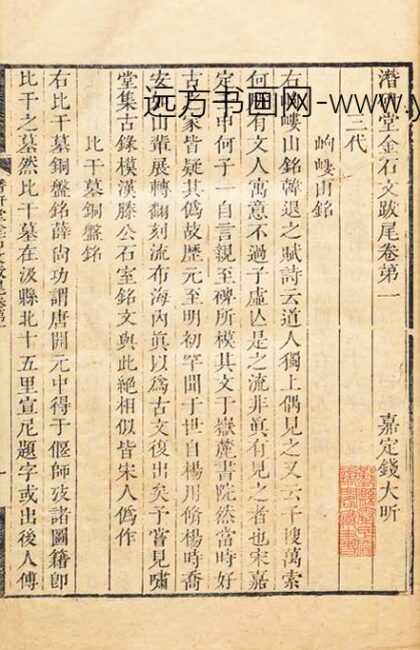 潛研堂金石文跋尾卷第一　嘉定錢大昕
三代
岣嶁山銘
右岣嶁山銘韓退之賦詩云道人獨上偶見之又云千搜萬索
何處有文人寓意不過子虛亾是之流非眞有見之者也宋嘉
定中何子一自言親至碑所模其文于嶽麓書院然當時好
古之家皆疑其僞故歷元至明初罕聞于世自楊用脩楊時喬
安如山輩展轉翻刻流布海內眞以爲古文復出矣予嘗見嘯
堂集古錄模漢滕公石室銘文與此絕相似皆宋人僞作
比干墓銅盤銘
右比干墓銅盤銘薛尙功謂唐開元中得于偃師攷諸圖籍卽
比干之墓然比干墓在汲縣北十五里宣尼題字或出後人傅
远方书画网-www.y